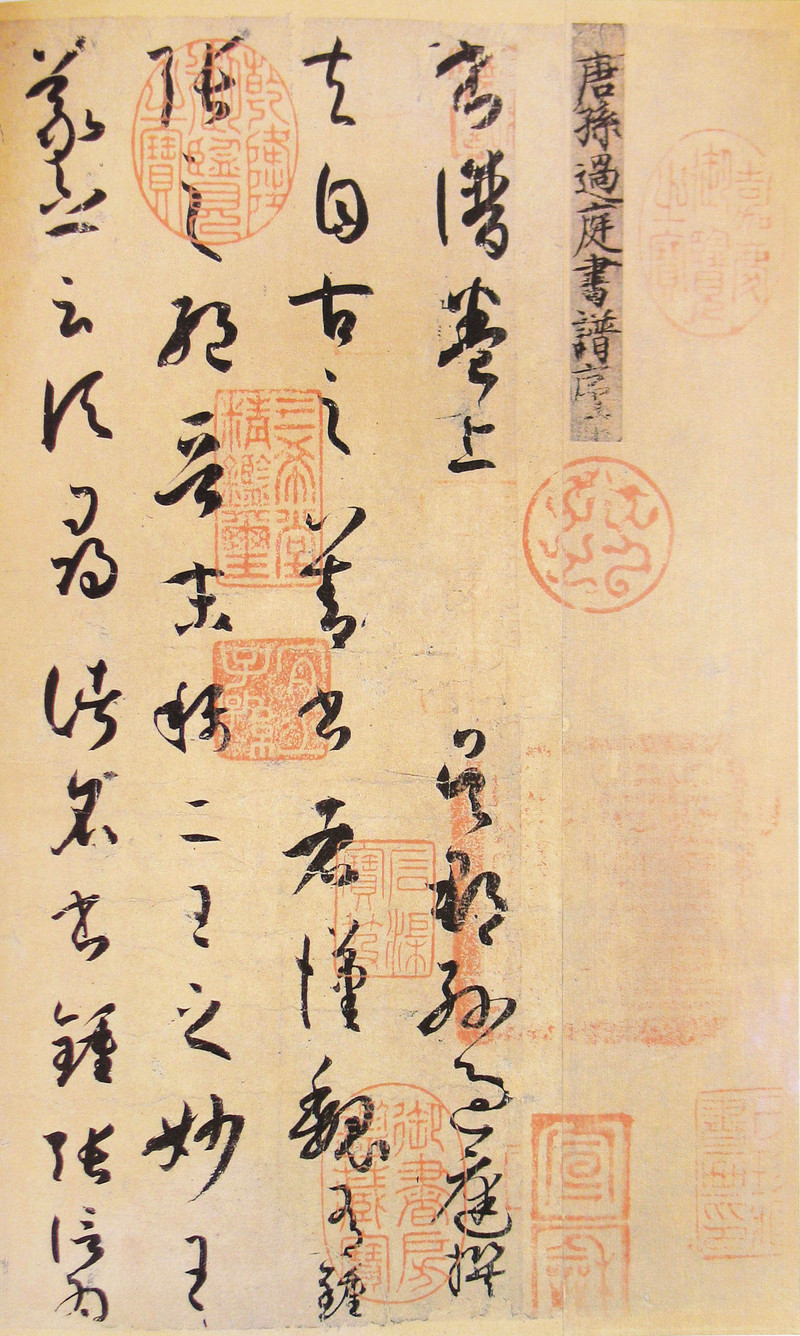 唐孫過庭書譜序
書譜卷上 吳郡孫過庭撰
夫自古之善書者漢魏有鍾
張之絕晉末稱二王之妙王
羲之云頃尋諸名書鍾張信為
嘉慶御覽之寶
乾隆御覽之寶
三希堂精鑑璽
宜子孫
石渠寶笈
御書房鑑藏寶
宣和